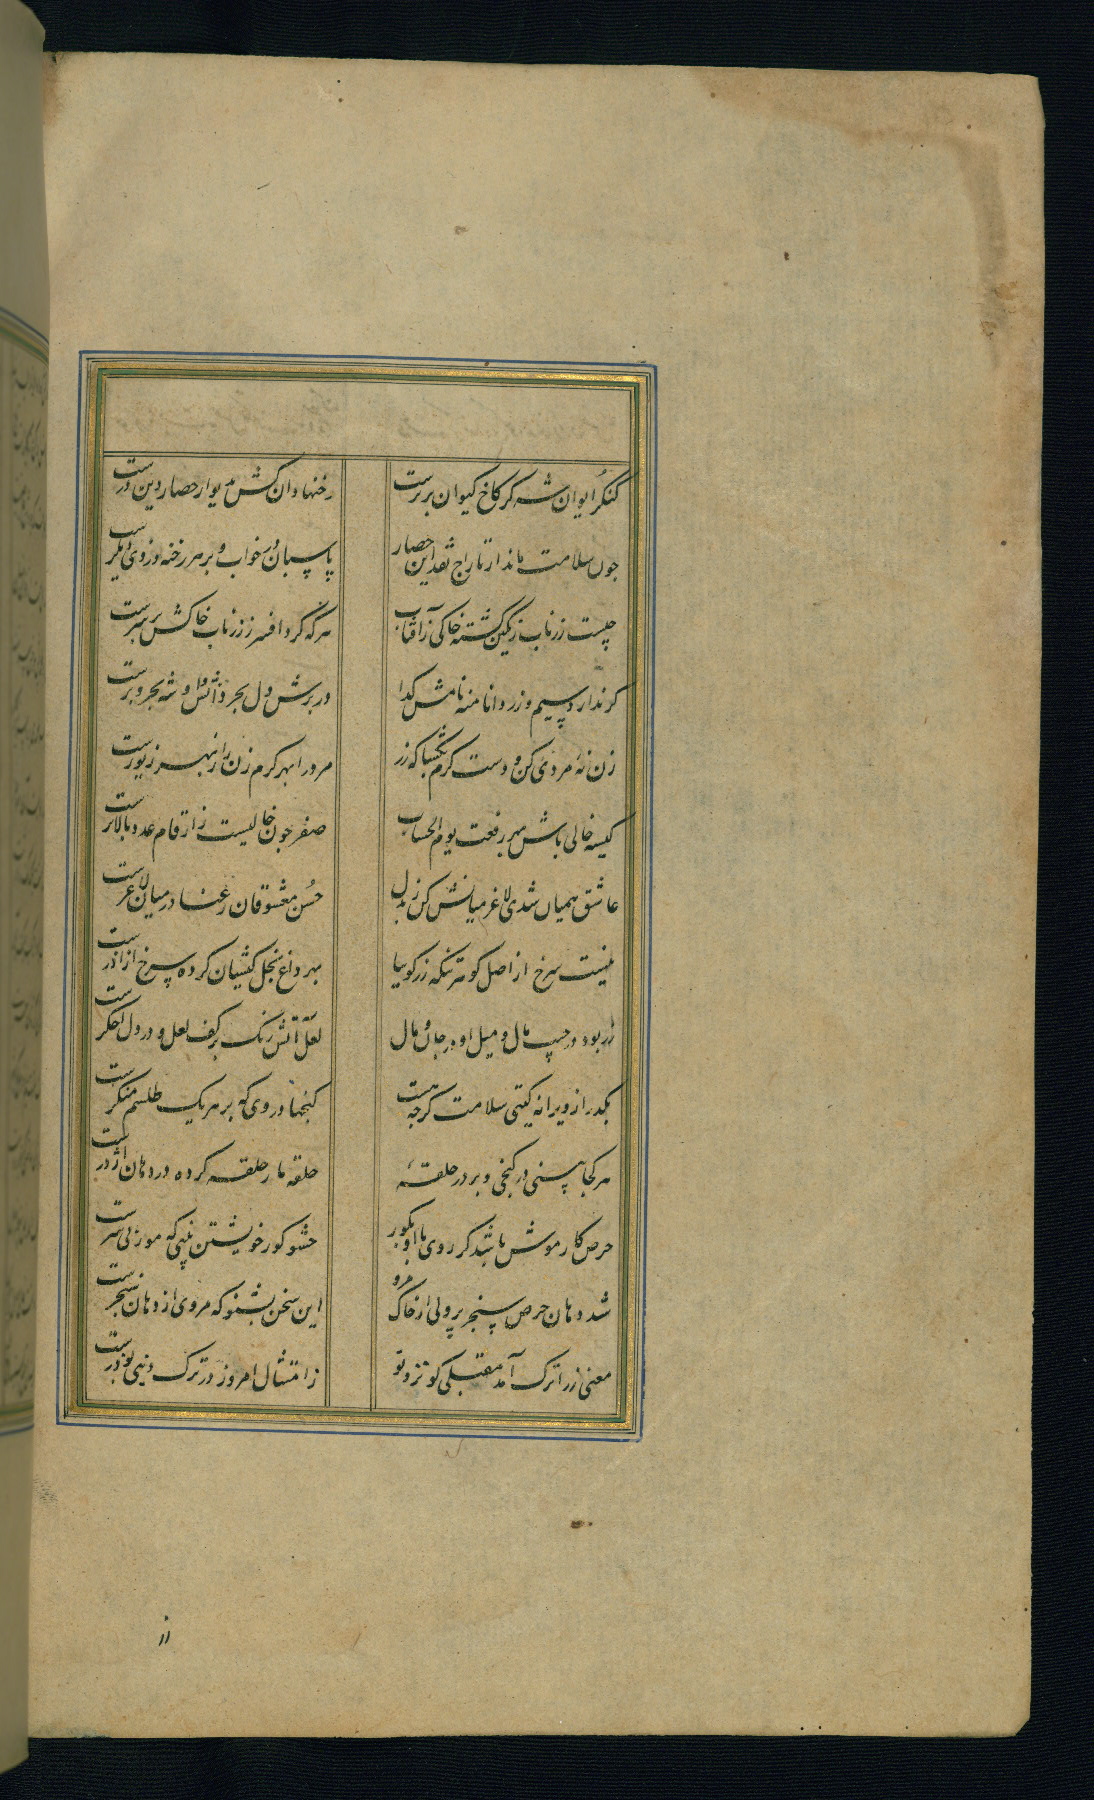 کنگر ایوان شه کز کاخ کیوان برترست رخنها دان کش بدیوار حصار دین درست
چون سلامت ماند از تاراج نقد این حصار پاسبان در خواب و بر هر رخنه دزدی دیگرست
چیست زر ناب رنگین گشته خاکی ز آفتاب هرکه کرد افسر ز زر ناب خاکش بر سرست
گر ندارد سیم و زر دانا منه نامش گدا در برش دل بحر دانش او شه بحر و برست
زن نهٔ مردی کن و دست کرم بگشا که زر مرد را بهر کرم زن را ز بهر زیورست
کیسه خالی باش بهر رفعت یوم الحساب صفر چون خالیست ز ارقام عدد بالاترست
عاشق همیان شدی لاغر میانش کن ز بذل حسن معشوقان رعنا در میان لاغرست
نیست سرخ از اصل گوهر تنگه زر گوییا بهر داغ بخل کیشان کرده سرخ از آذرست
زر بود در جیب مال و میل او در جان وبال لعل آتش رنگ بر کف لعل و در دل اخگرست
بگذر از ویرانه گیتی سلامت گرچه هست گنجها در وی که بر هر یک طلسم منکرست
هر کجا بینی در گنجی و بر در حلقهٔ حلقه مار حلقه کرده در دهان اژدرست
حرص کار موش باشد گر روی با او بگور حشو گور خویشتن بینی که موری بی سرست
شد دهان حرص سنجر پر ولی از خاک مرو این سخن بشنو که مروی از دهان سنجرست
معنی زر اترک آمد مقبلی کو ترد تو ز امتثال امروز در ترک دنیی بوذرست
از